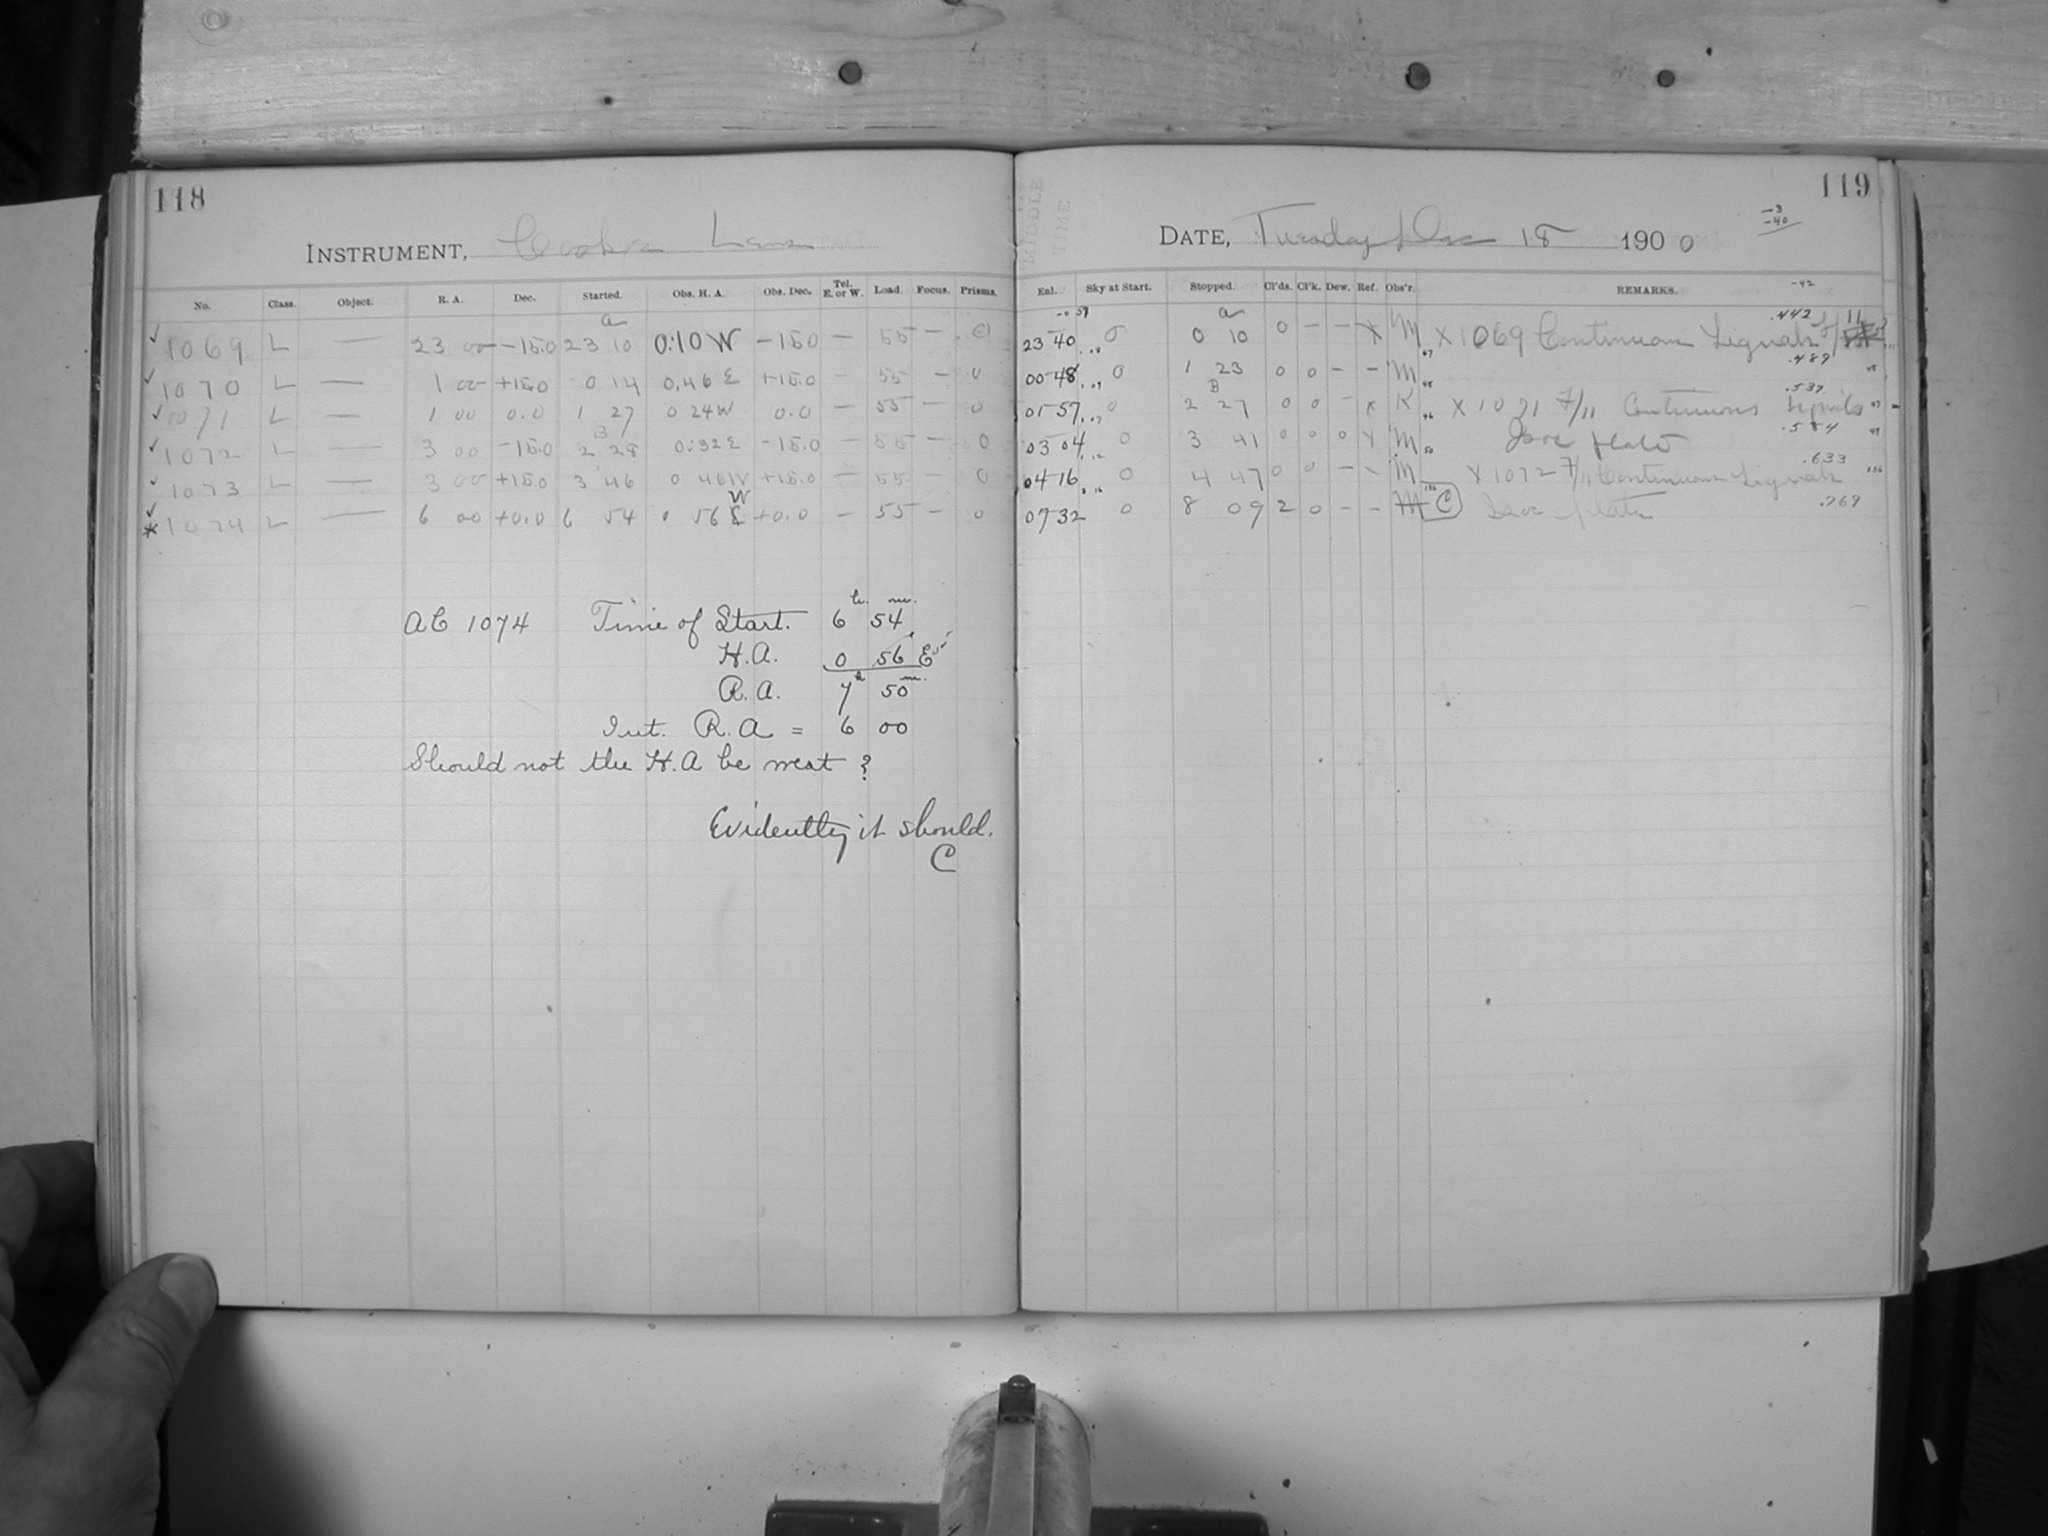 118
INSTRUMENT, Cooke Lens
No. Class. Object. R. A. Dec. Started. Obs. H. A. Obs. Dec. Tel. E. or W. Load. Focus. Prisms.
✓ 1069 L — 23 00 -15.0 23 10 0.10 W -15.0 — 55 — 0
✓ 1070 L — 1 00 +15.0 0 14 0.46 E +15.0 — 55 — 0
✓ 1071 L — 1 00 0.0 1 27 0 24 W 0.0 — 55 — 0
✓ 1072 L — 3 00 -15.0 2 28 0.32 E -15.0 — 55 — 0
✓ 1073 L — 3 00 +15.0 3 46 0 46 W +15.0 — 55 — 0
✓ * 1074 L — 6 00 +0.0 6 54 0 56 W +0.0 — 55 — 0
h. m.
AC 1074 Time of Start. 6 54
H.A. 0 56 E
R.A. 7h 50m.
Int. R.A = 6 00
Should not the H.A be west ?
Evidently it should.
C
119
-3
-40
DATE, Tuesday Dec 18 1900
Enl. Sky at Start. Stopped. Cl'ds. Cl'k. Dew. Ref. Obs'r. REMARKS.
-42
23 40 0 0 10 0 — — x M x 1069 Continuous Signals F/11 .442
00 48 0 1 23 0 0 — — M .489
01 57 0 2 27 0 0 — x K x 1071 F/11 Continuous Signals .537
03 04 0 3 41 0 0 0 x M Isoc plate .584
04 16 0 4 47 0 0 — — M x 1072 F/11 Continuous Signals .633
07 32 0 8 09 2 0 — — M C Isoc plate .769